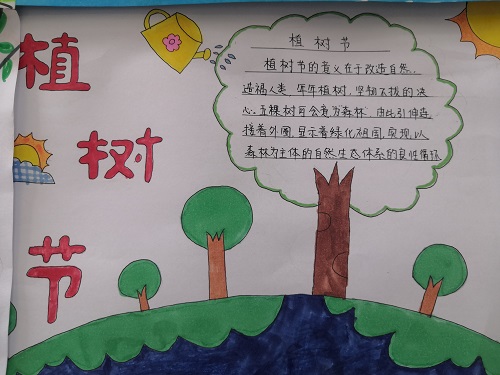 植
树
节
植树节
植树节的意义在于改造自然、
造福人类,年年植树,坚韧不拔的决
心。五棵树可会意为森林,由此引伸连
接着外圈,显示着绿化祖国,实现以
森林为主体的自然生态体系的良性循环